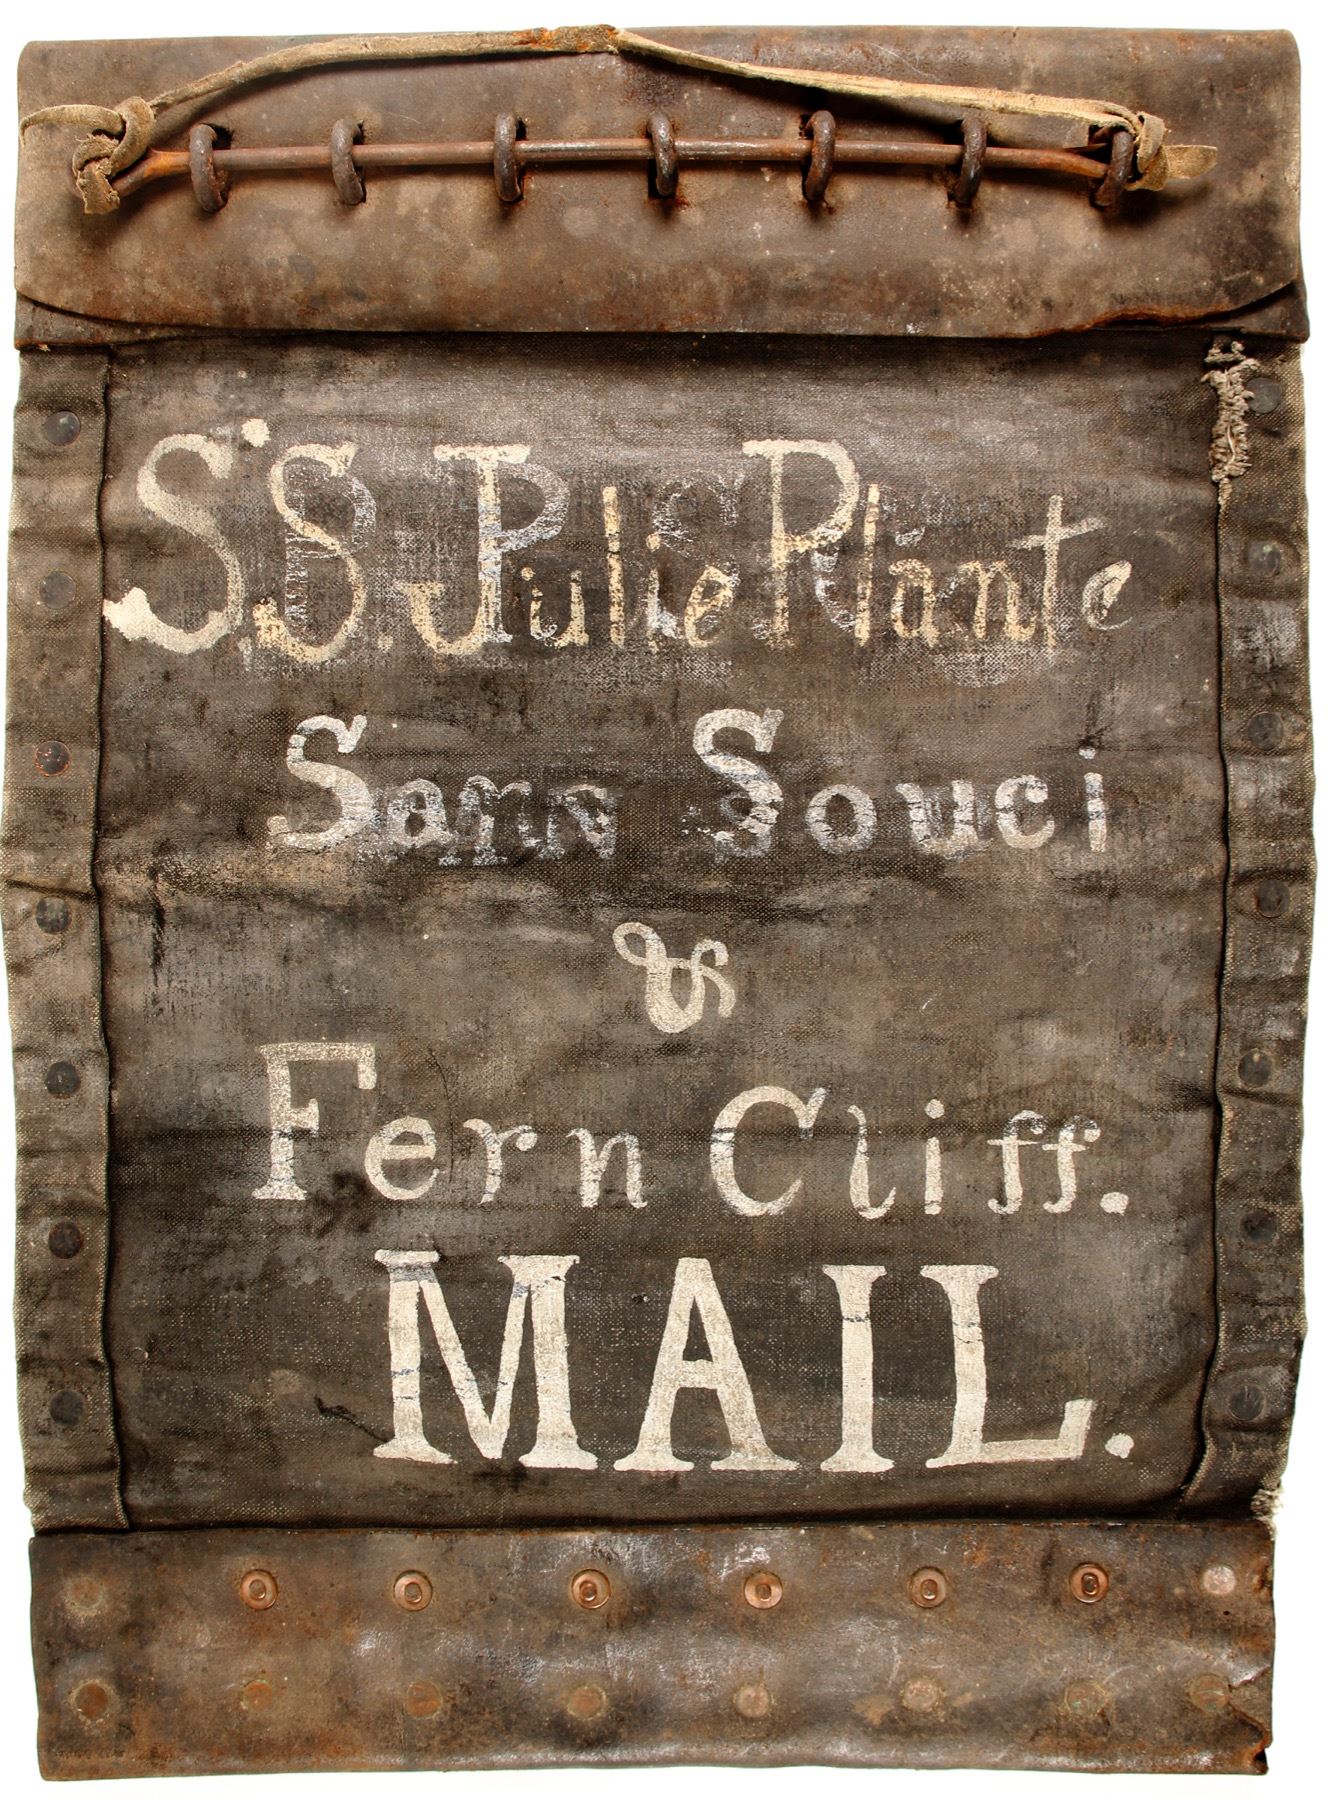 S.S. Julie Plante
Sans Souci
&
Fern Cliff.
MAIL.